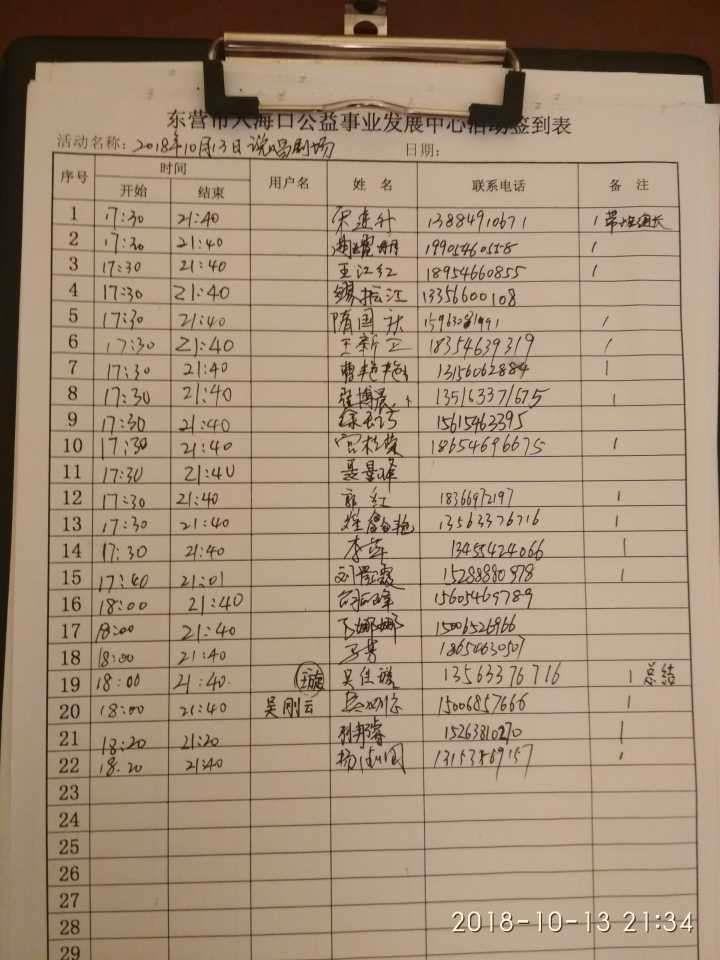 东营市入海口公益事业发展中心活动签到表
活动名称：2018年10月13日说唱剧场 日期：
序号 时间 用户名 姓 名 联系电话 备 注
开始 结束
1 17:30 21:40 13884910671 1
2 17:30 21:40 19905460558 1
3 17:30 21:40 王江红 18954660855 1
4 17:30 21:40 振江 13356600108
5 17:30 21:40 隋国 1
6 17:30 21:40 王新 18354639319 1
7 17:30 21:40 曹艳艳 13156062884 1
8 17:30 21:40 崔博晨 135163371675 1
9 17:30 21:40 15615463395
10 17:30 21:40 18654696675 1
11 17:30 21:40 聂景峰
12 17:30 21:40 郭红 18366972197 1
13 17:30 21:40 13563376716 1
14 17:30 21:40 李萍 13455424066 1
15 17:40 21:01 刘 15288880978 1
16 18:00 21:40 15605469789
17 18:00 21:40 娜娜 15006526966
18 18:00 21:40 18654630507
19 18:00 21:40 吴佳璇 13563376716 1 总结
20 18:00 21:40 吴刚云 15006857666 1
21 18:20 21:20 15263810270 1
22 18:20 21:40 杨 1
23
24
25
26
27
28
29
2018-10-13 21:34